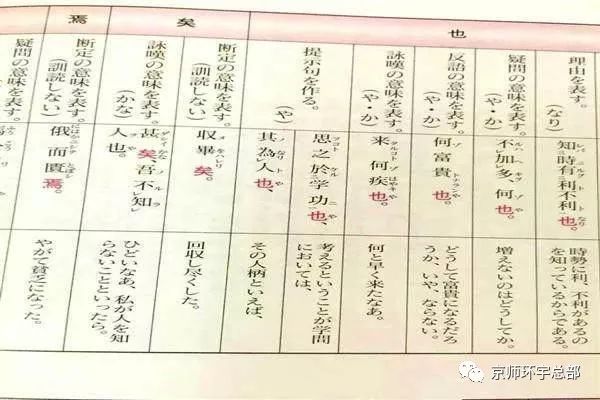 也
理由を表す。
(なり)
知時有利不利也。
時勢に利、不利があるの
を知っているからである。
疑問の意味を表す。
(や・か)
不加多、何也。
増えないのはどうしてか。
反語の意味を表す。
(や・か)
何富貴也。
どうして富貴になるだろ
うか、いや、ならない。
詠嘆の意味を表す。
(や・か)
来何疾也。
何と早く来たなあ。
提示句を作る。
(や)
思之於学功也、
考えるということが学問
においては、
其為人也、
その人柄といえば、
矣
断定の意味を表す。
(訓読しない)
収畢矣。
回収し尽くした。
詠嘆の意味を表す。
(かな)
甚矣、吾不知
人也。
ひどいなあ、私が人を知
らないことといったら。
焉
断定の意味を表す。
(訓読しない)
俄而匱焉。
やがて貧乏になった。
疑問の意味を表す。
京师环宇总部